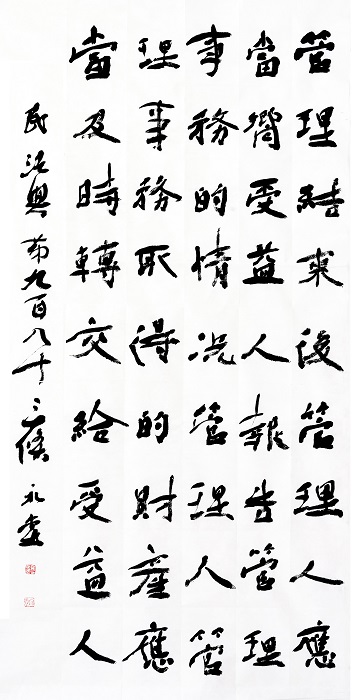 管理結束後管理人應
當嚮受益人報告管理
事務的情況管理人管
理事務取得的財產應
當及時轉交給受益人
民法典第九百八十三條 永